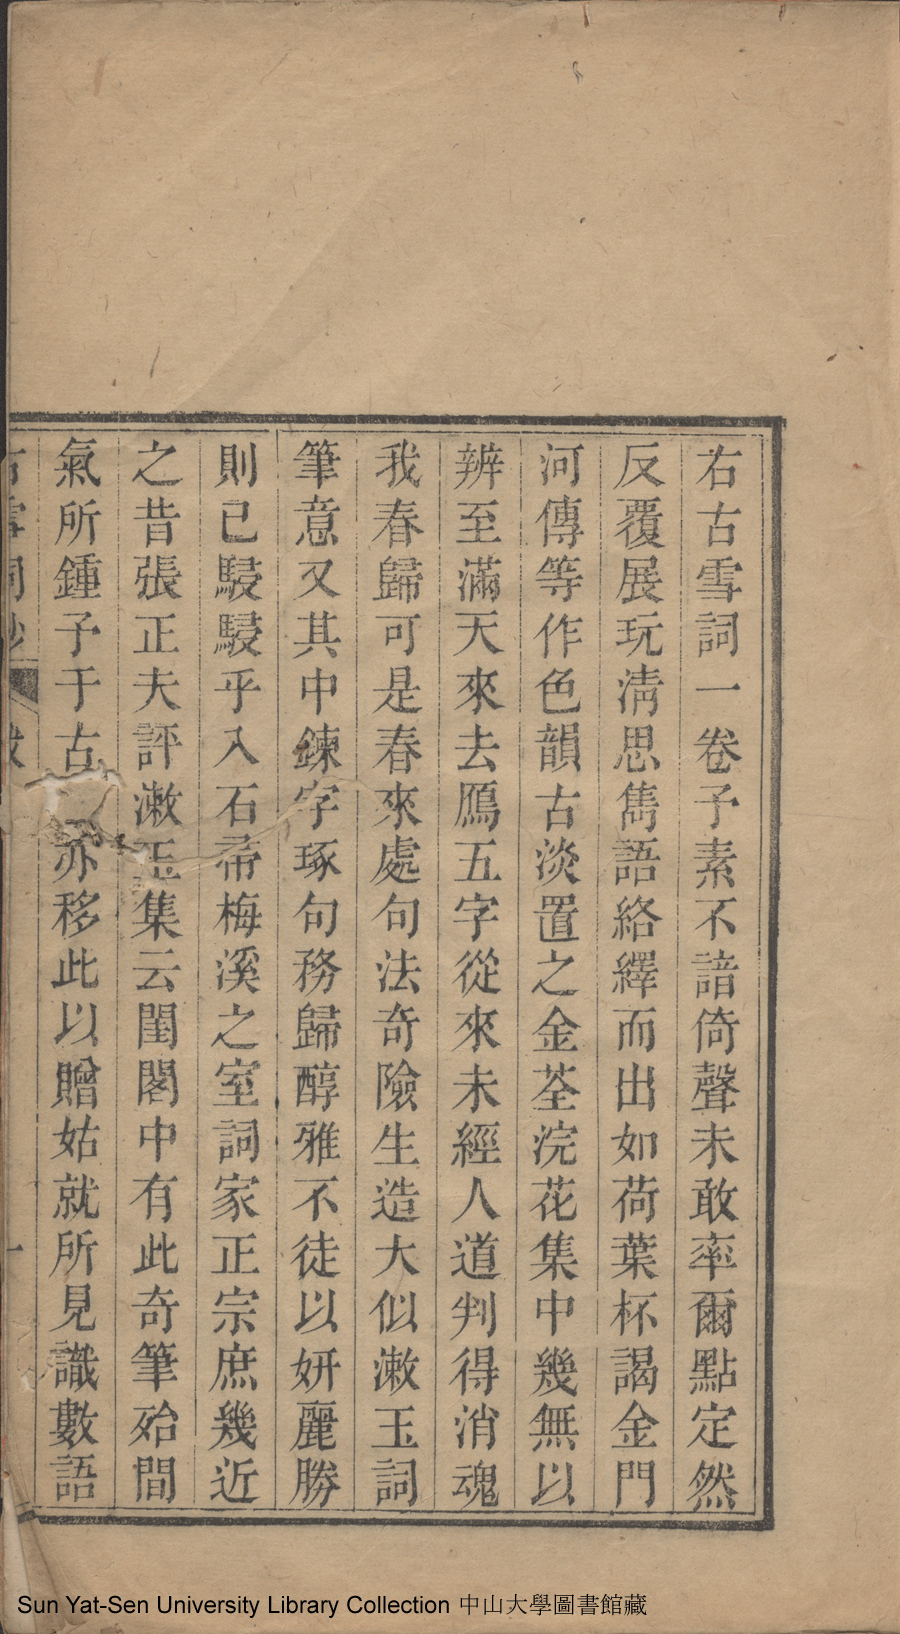 右古雪詞一卷予素不諳倚聲未敢率爾點定然
反覆展玩淸思雋語絡繹而出如荷葉杯謁金門
河傳等作色韻古淡置之金荃浣花集中幾無以
辨至滿天來去鴈五字從來未經人道判得消魂
我春歸可是春來處句法奇險生造大似漱玉詞
筆意又其中鍊字琢句務歸醇雅不徒以妍麗勝
則已駸駸乎入石帚梅溪之室詞家正宗庶幾近
之昔張正夫評漱玉集云閨閣中有此奇筆殆間
氣所鍾予于古亦移此以贈姑就所見識數語
Sun Yat-Sen University Library Collection 中山大學圖書館藏